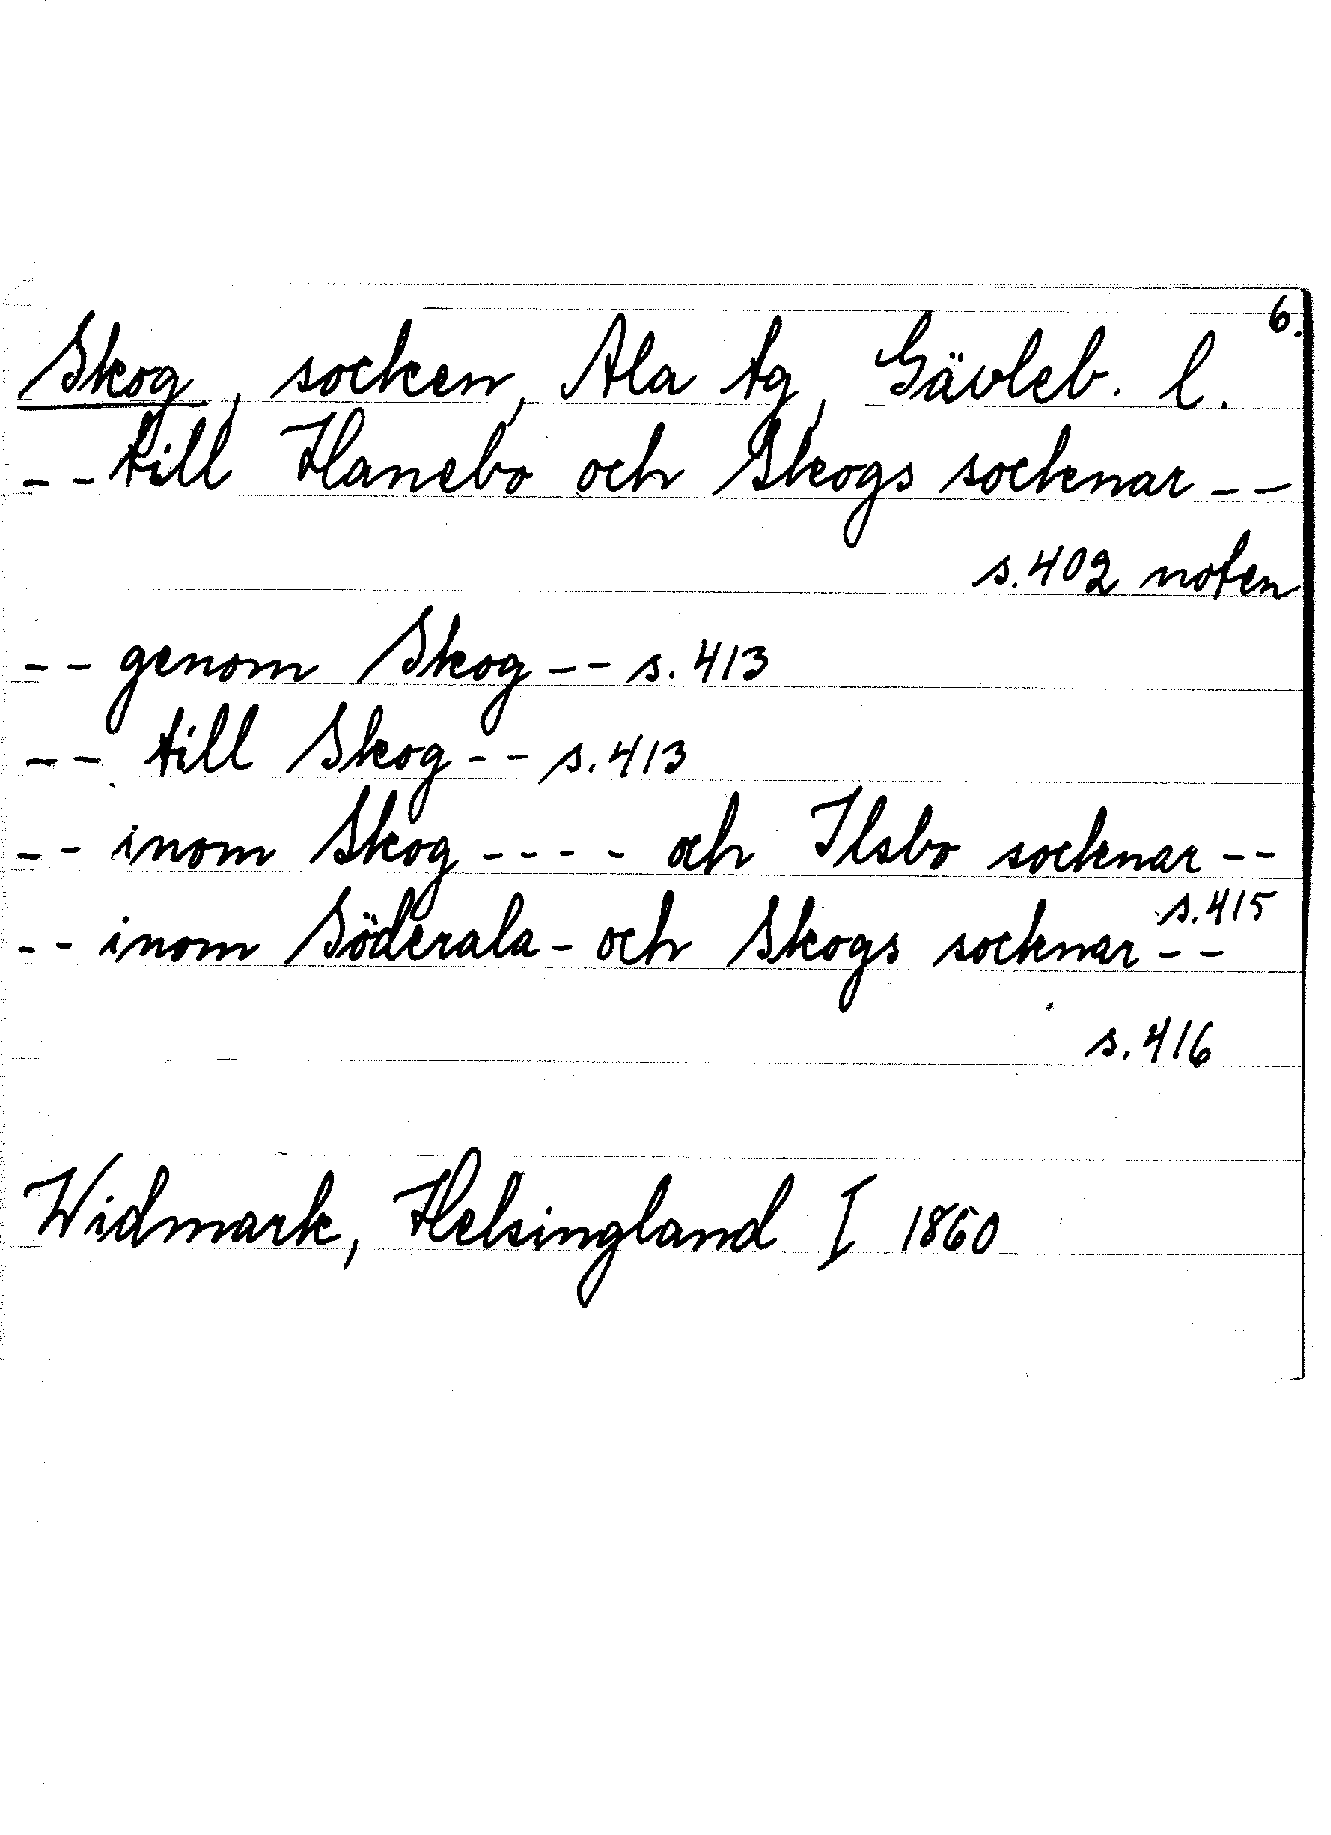 6.
Skog, socken, Ala tg, Gävleb. l.
-- till Hanebo och Skogs socknar --
s. 402 noten
-- genom Skog -- s. 413
-- till Skog -- s. 413
-- inom Skog ---- och Ilsbo socknar --
s. 415
-- inom Söderala - och Skogs socknar --
s. 416
Widmark, Helsingland I 1860